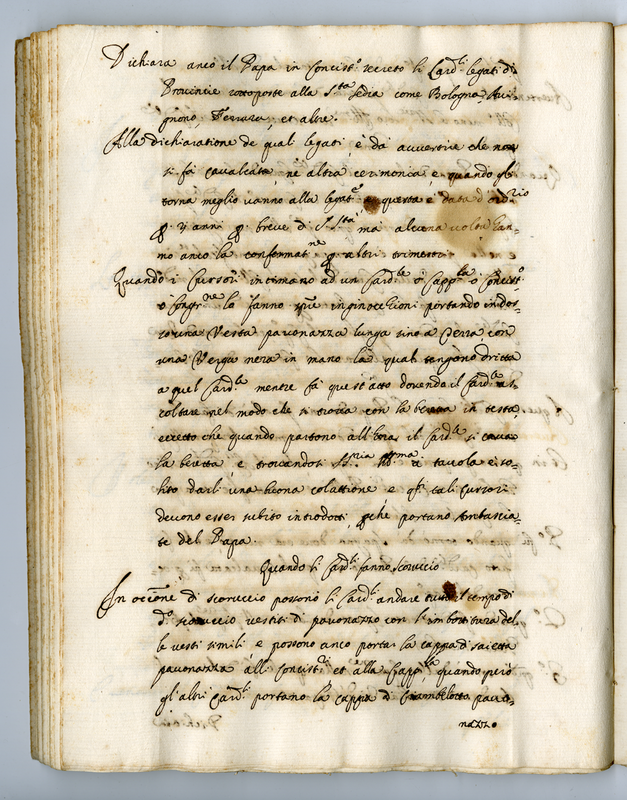 Dichiara anco il Papa in Concist.o secreto li Card.li legati di
Provincie sottoposte alla S.ta Sedia come Bologna Avi-
gnone, Ferrara, et altre.
Alla dichiaratione de quali legati è da avvertire che non
si fa cavalcata, nè altra cerimonia, e quando gli
torna meglio vanno alla legat.e questa è data d'ord.rio
p. 3 anni p. breve di S. S.tà ma alcuna volta han-
no anco la confermat.ne p. altri
Quando i Cursori intimano ad un Card.le ò Capp.lla ò Concist.o
o Congr.ne la fanno inginocchioni portando indos-
so una Vesta pavonazza lunga sino a Terra, con
una Verga nera in mano la qual tengono dritta
a quel Card.le mentre fà quest'atto dovendo il Card.le as-
coltare nel modo che si trova con la beretta in testa,
eccetto che quando partono all'hora il Card.le si cava
la beretta e trovandosi S.S.ria Ill.ma a tavola è so-
lito darli una buona colattione, e q.sti tali Cursori
devono esser subito introdotti, p.chè portano Ambascia-
te del Papa.
Quando li Card.li fanno scoruccio
In occ.ne di scoruccio possono li Card.li andare tutto il tempo di
d.o scoruccio vestiti di pavonazzo con l'imbottitura del-
le vesti simili, e possono anco portar la cappa di saietta
pavonazza alli Concist.ri et alla Capp.lla quando però
gl'altri Card.li portano la cappa di Ciambelotto pavo-
nazzo